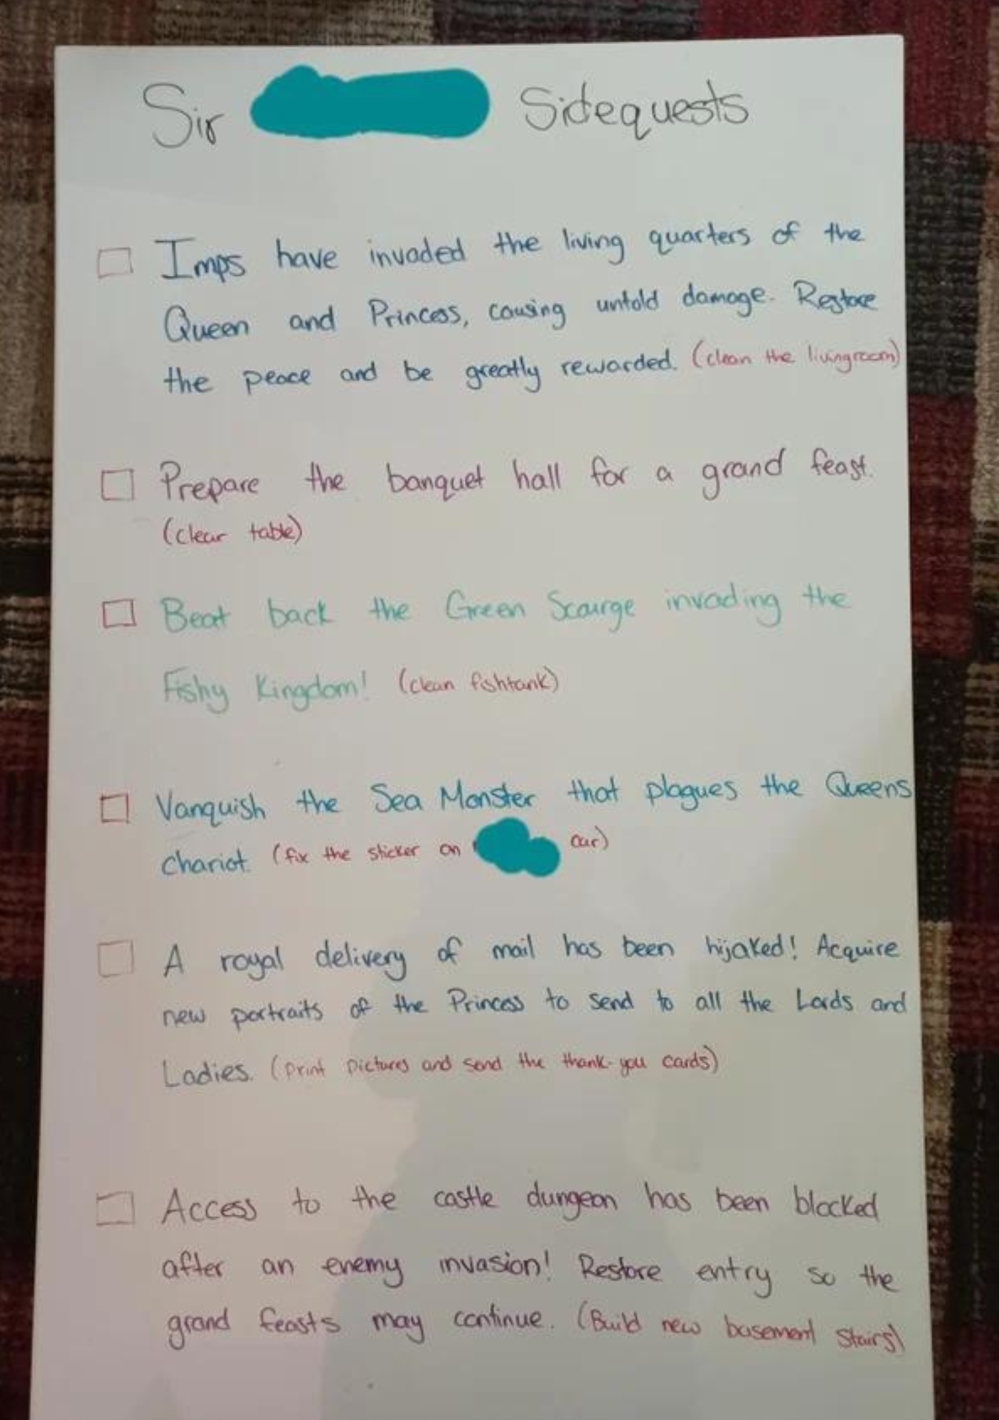 Sir Sidequests
Imps have invaded the living quarters of the
Queen and Princess, causing untold damage. Restore
the peace and be greatly rewarded. (clean the livingroom)
Prepare the banquet hall for a grand feast.
(clear table)
Beat back the Green Scourge invading the
Fishy Kingdom! (clean fishtank)
Vanquish the Sea Monster that plagues the Queens
chariot. (fix the sticker on car)
A royal delivery of mail has been hijaked! Acquire
new portraits of the Princess to send to all the Lords and
Ladies. (print pictures and send the thank-you cards)
Access to the castle dungeon has been blocked
after an enemy invasion! Restore entry so the
grand feasts may continue. (Build new basement stairs)